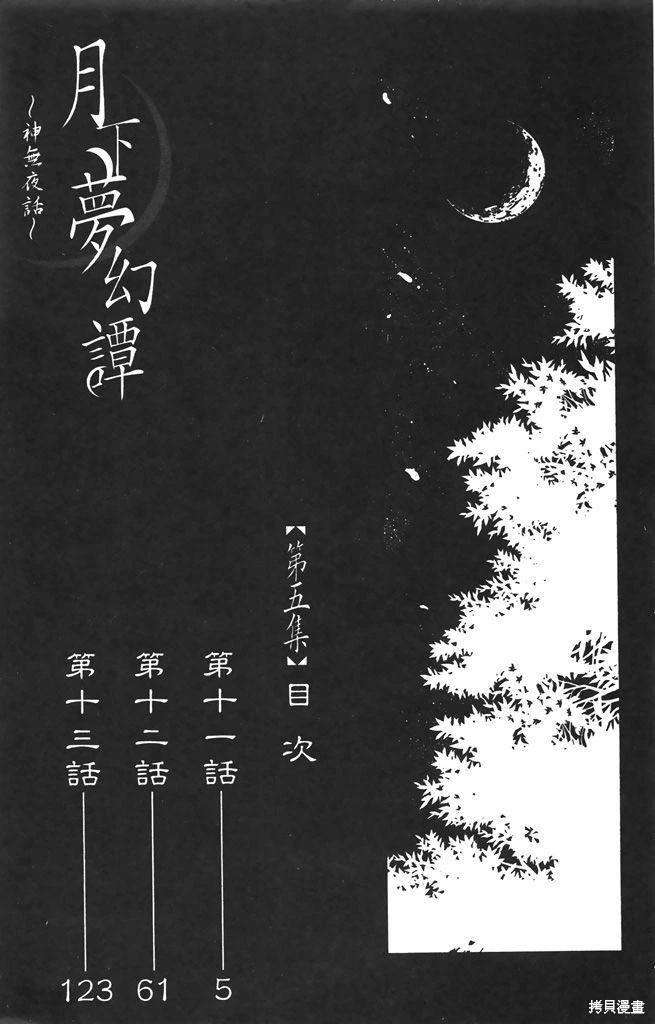 月下夢幻譚
～神無夜話～
【第五集】目次
第十一話 5
第十二話 61
第十三話 123
拷貝漫畫